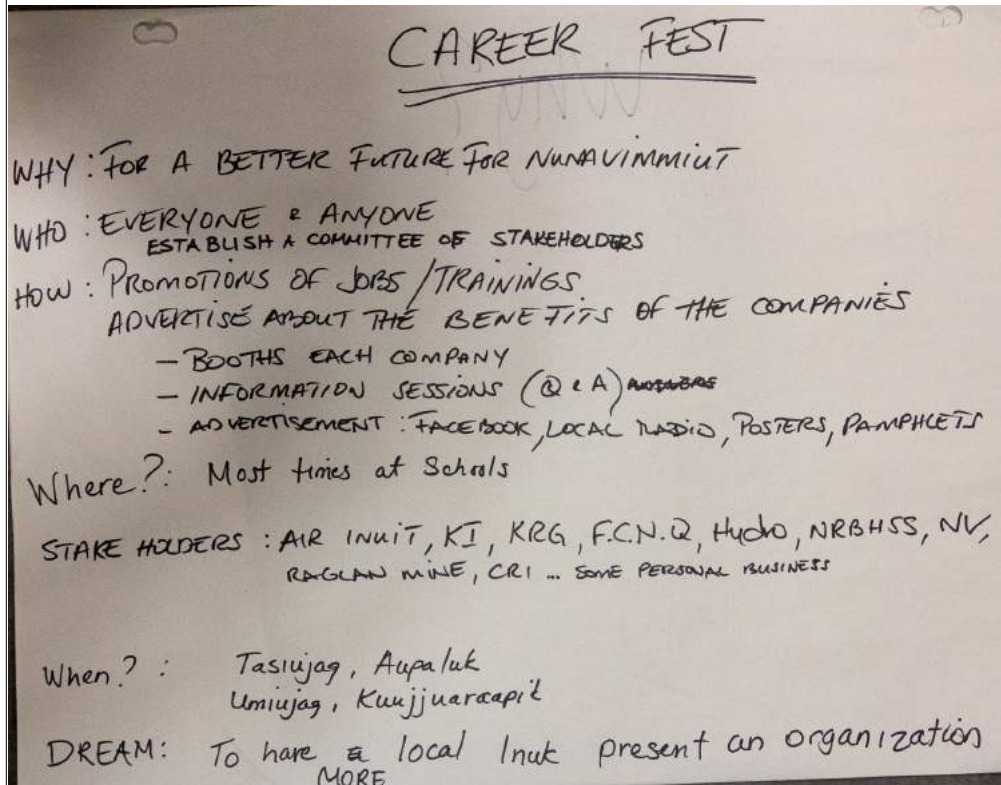 CAREER FEST
WHY: FOR A BETTER FUTURE FOR NUNAVIMMIUT
WHO: EVERYONE & ANYONE
ESTABLISH A COMMITTEE OF STAKEHOLDERS
HOW: PROMOTIONS OF JOBS/TRAININGS
ADVERTISE ABOUT THE BENEFITS OF THE COMPANIES
- BOOTHS EACH COMPANY
- INFORMATION SESSIONS (Q & A)
- ADVERTISEMENT: FACEBOOK, LOCAL RADIO, POSTERS, PAMPHLETS
Where?: Most times at Schools
STAKE HOLDERS: AIR INUIT, KI, KRG, F.C.N.Q, Hydro, NRBHSS, NV,
RAGLAN MINE, CRI ... SOME PERSONAL BUSINESS
When?: Tasiujaq, Aupaluk
Umiujaq, Kuujjuaraapik
DREAM: To have local Inuk present an organization
MORE